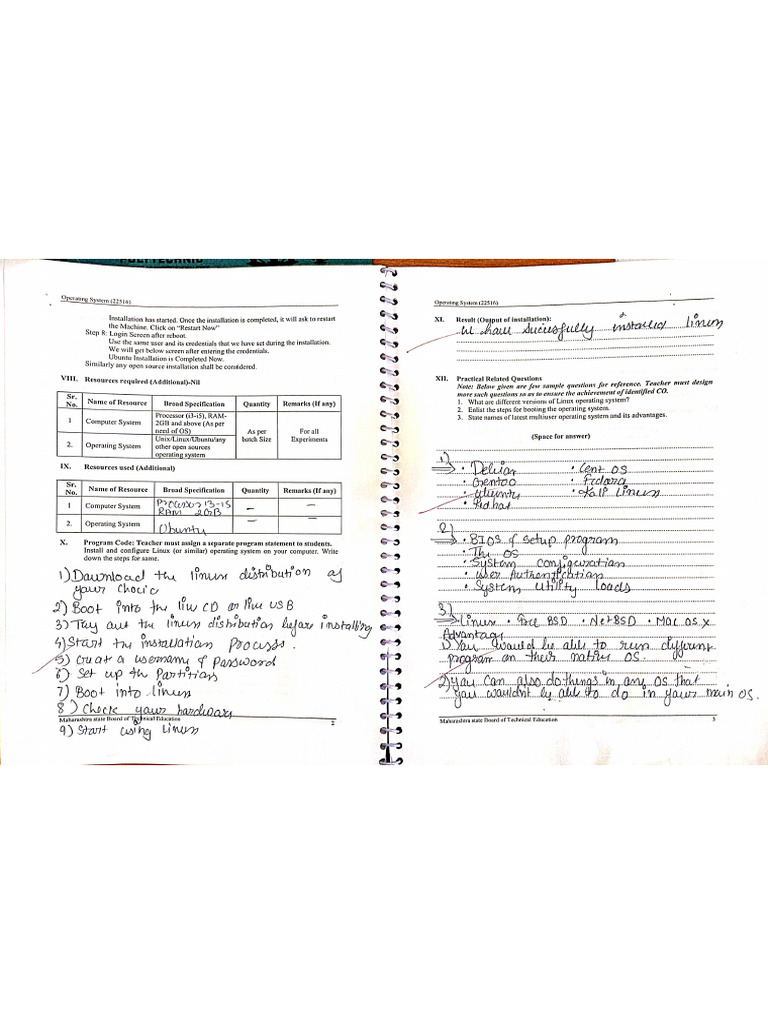 POLYTECHNIC
Operating System (22516)
Installation has started. Once the installation is completed, it will ask to restart
the Machine. Click on "Restart Now"
Step 8: Login Screen after reboot.
Use the same user and its credentials that we have set during the installation.
We will get below screen after entering the credentials.
Ubuntu Installation is Completed Now.
Similarly any open source installation shall be considered.
VIII. Resources required (Additional)-Nil
Sr. No. Name of Resource Broad Specification Quantity Remarks (If any)
1 Computer System Processor (i3-i5), RAM-2GB and above (As per need of OS) As per batch Size For all Experiments
2. Operating System Unix/Linux/Ubuntu/any other open sources operating system
IX. Resources used (Additional)
Sr. No. Name of Resource Broad Specification Quantity Remarks (If any)
1 Computer System Processor i3-i5 RAM 2GB – –
2. Operating System Ubuntu – –
X. Program Code: Teacher must assign a separate program statement to students.
Install and configure Linux (or similar) operating system on your computer. Write
down the steps for same.
1) Download the linux distribution of
your choice
2) Boot into the live CD or live USB
3) Try out the linux distribution before installing
4) Start the installation process.
5) Creat a username & password
6) Set up the Partitions
7) Boot into linux
8) Check your hardware
Maharashtra state Board of Technical Education 2
9) Start using Linux
Operating System (22516)
XI. Result (Output of installation):
We have sucessfully installed linux
XII. Practical Related Questions
Note: Below given are few sample questions for reference. Teacher must design
more such questions so as to ensure the achievement of identified CO.
1. What are different versions of Linux operating system?
2. Enlist the steps for booting the operating system.
3. State names of latest multiuser operating system and its advantages.
(Space for answer)
1)
⇒ • Debian • Cent OS
• Gentoo • Fedora
• Ubuntu • Kali Linux
• Redhat
2)
⇒ • BIOS & setup program
• The OS
• System configuration
• User Authentification
• System Utility loads
3)
⇒ • Linux • Free BSD • Net BSD • Mac OS X
Advantage
1) You would be able to run different
program on their native OS.
2) you can also do things in any OS that
you wouldnt be able to do in your main OS.
Maharashtra state Board of Technical Education 3